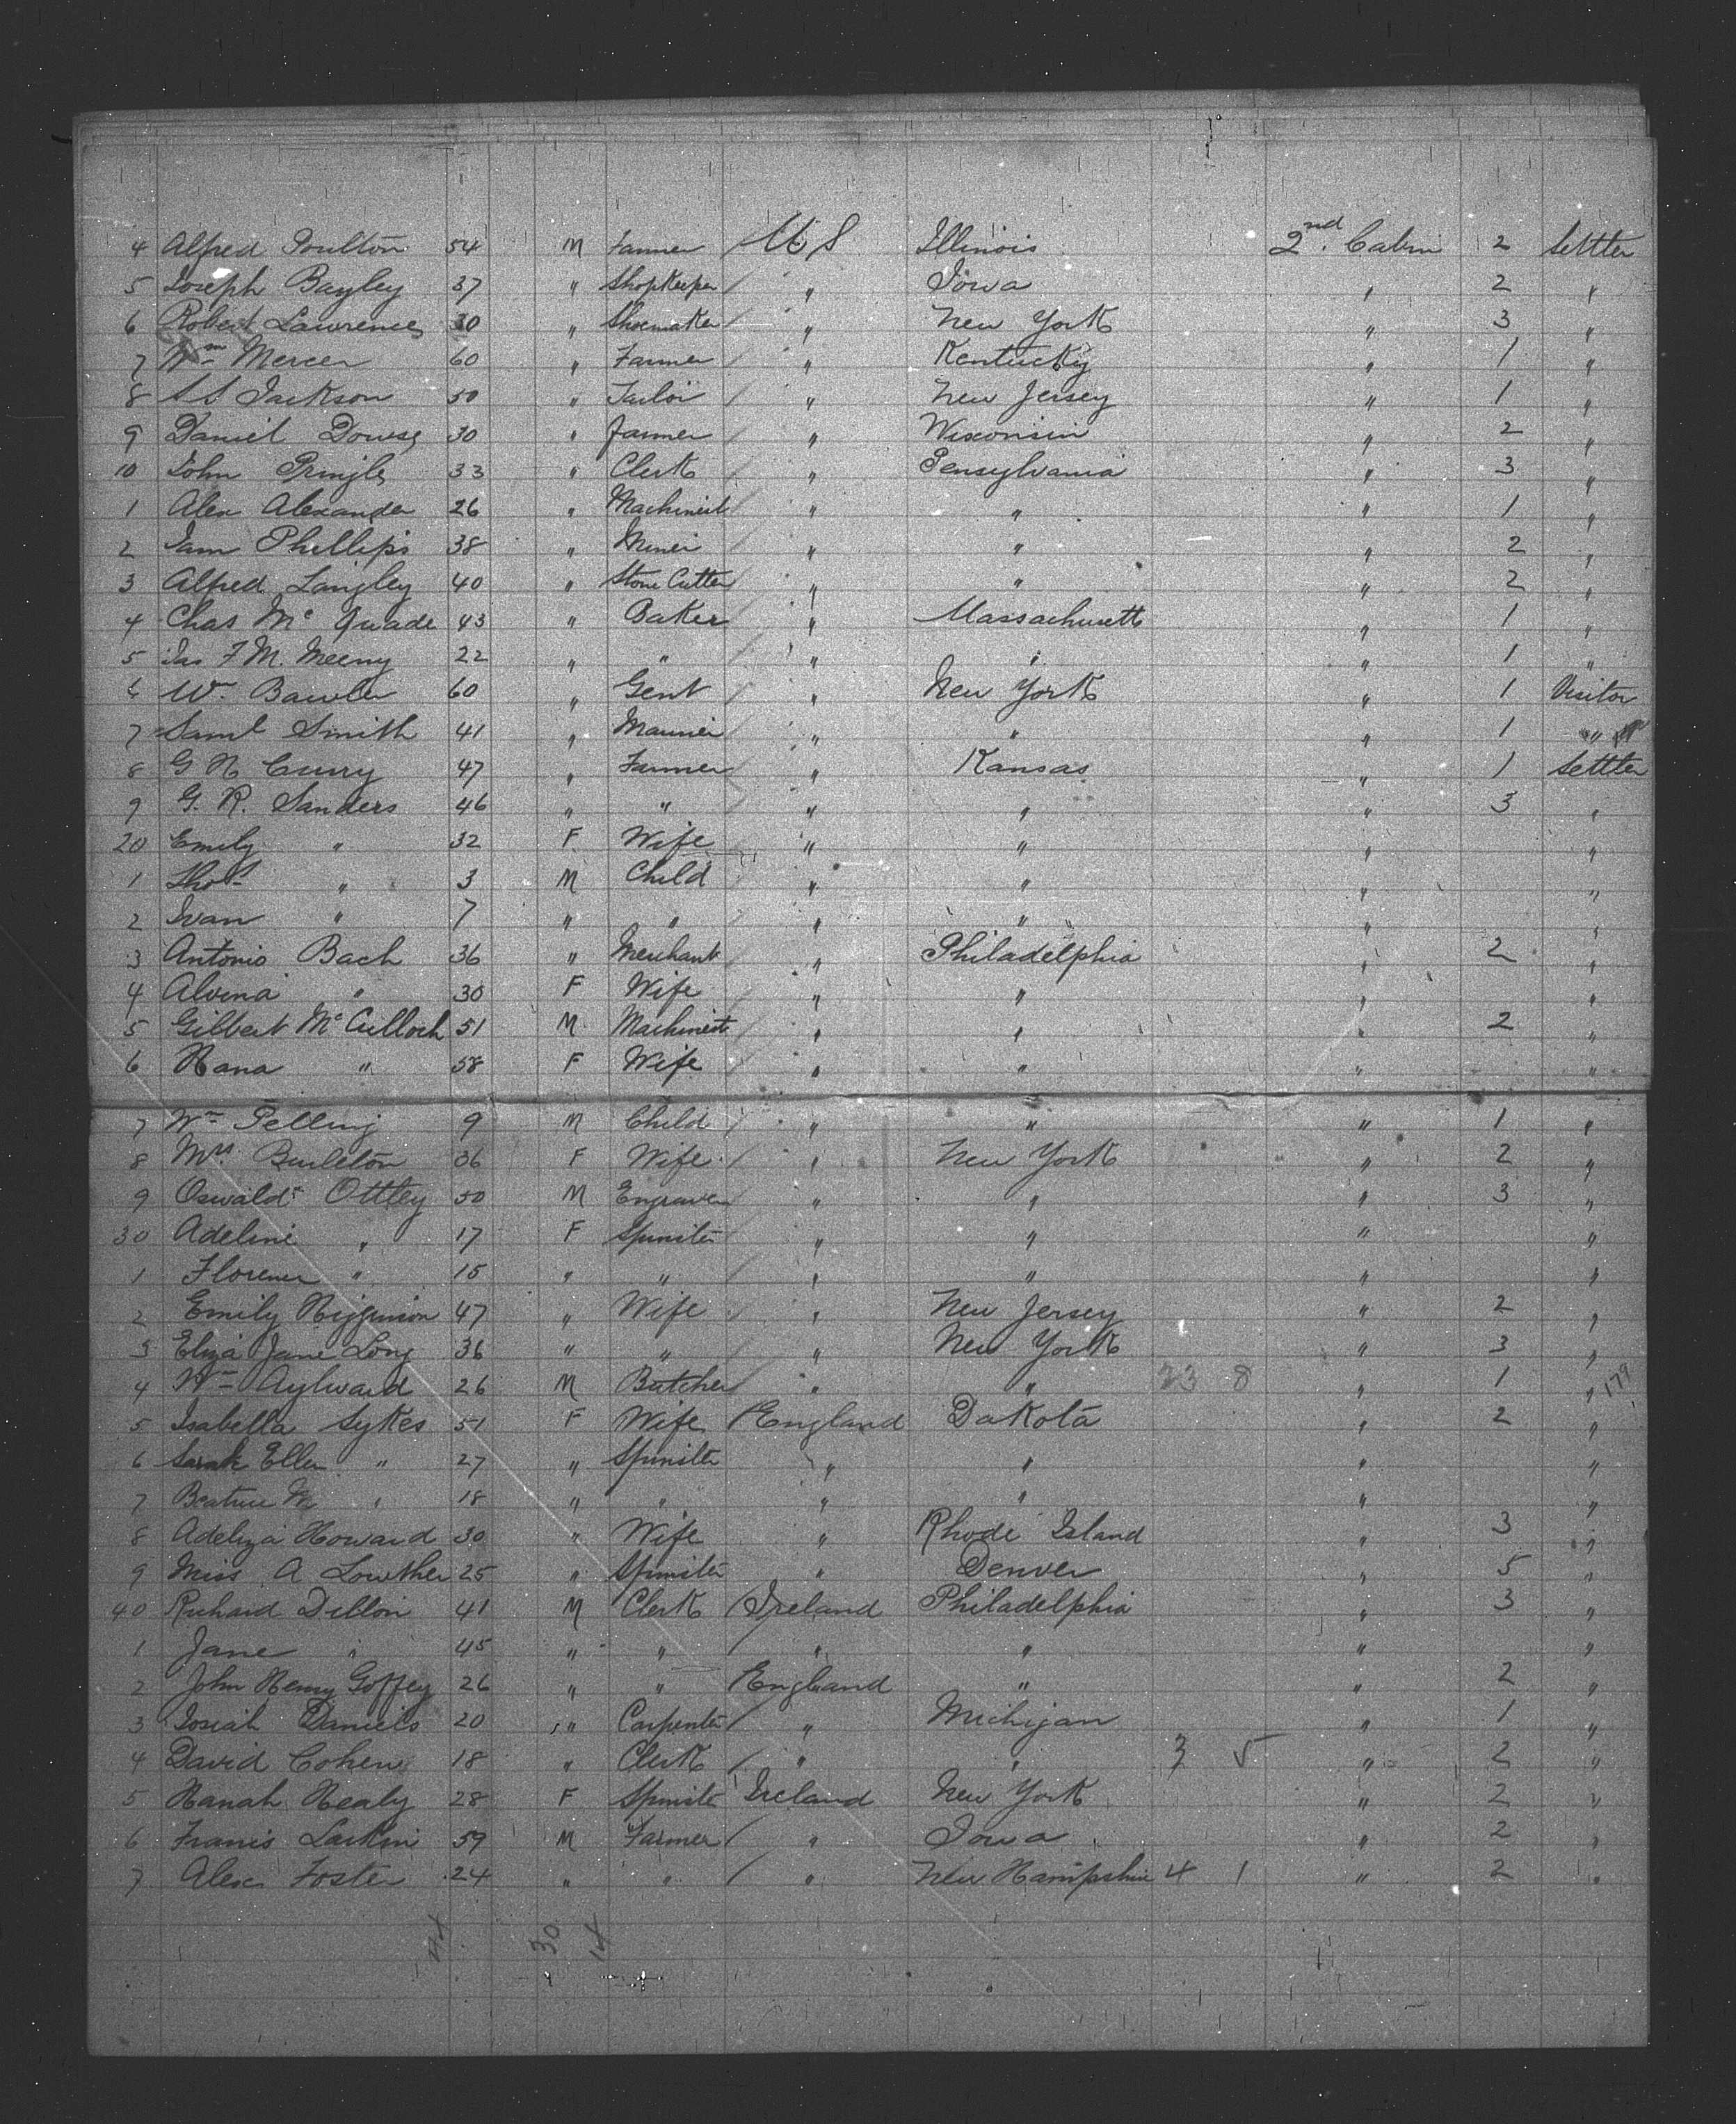 4 Alfred Poulton 54 M Farmer U S Illinois 2nd. Cabin 2 Settler
5 Joseph Bayley 37 " Shopkeeper " Iowa " 2 "
6 Robert Lawrence 30 " Shoemaker " New York " 3 "
7 Wm Mercer 60 " Farmer " Kentucky " 1 "
8 S S Jackson 50 " Tailor " New Jersey " 1 "
9 Daniel Dowse 30 " Farmer " Wisconsin " 2 "
10 John Pringle 33 " Clerk " Pensylvania " 3 "
1 Alex Alexander 26 " Machinist " " " 1 "
2 Sam Phillips 38 " Miner " " " 2 "
3 Alfred Langley 40 " Stone Cutter " " " 2 "
4 Chas Mc Quade 43 " Baker " Massachusetts " 1 "
5 Jas F M. Meeny 22 " " " " " 1 "
6 Wm Bawler 60 " Gent " New York " 1 Visitor
7 Saml Smith 41 " " " " 1 "
8 G H Curry 47 " Farmer " Kansas " 1 Settler
9 G. R. Sanders 46 " " " " " 3 "
20 Emily " 32 F Wife " " " "
1 Thos " 3 M Child " " " "
2 Ivan " 7 " " " " " "
3 Antonio Bach 36 " Merchant " Philadelphia " 2 "
4 Alvina " 30 F Wife " " " "
5 Gilbert Mc Culloch 51 M Machinist " " " 2 "
6 Hana " 58 F Wife " " " "
7 Wm Pelling 9 M Child " " " 1 "
8 Mrs Burleton 36 F Wife " New York " 2 "
9 Oswald Ottley 50 M Engraver " " " 3 "
30 Adeline " 17 F Spinster " " " "
1 Florence " 15 " " " " " "
2 Emily Higginson 47 " Wife " New Jersey " 2 "
3 Eliza Jane Long 36 " " " New York " 3 "
4 Wm Aylward 26 M Butcher " " 23 8 " 1 " 179
5 Isabella Sykes 51 F Wife England Dakota " 2 "
6 Sarah Ellen " 27 " Spinster " " " "
7 Beatrice M " 18 " " " " " "
8 Adeliza Howard 30 " Wife " Rhode Island " 3 "
9 Miss A Lowther 25 " Spinster " Denver " 5 "
40 Richard Dillon 41 M Clerk Ireland Philadelphia " 3 "
1 Jane " 45 " " " " " "
2 John Henry Goffey 26 " " England " " 2 "
3 Josiah Daniels 20 " Carpenter " Michigan " 1 "
4 David Cohen 18 " Clerk " " 7 5 " 2 "
5 Hanah Healy 28 F Spinster Ireland New York " 2 "
6 Francis Larkin 59 M Farmer " Iowa " 2 "
7 Alex Foster 24 " " " New Hampshire 4 1 " 2 "
44 30 14